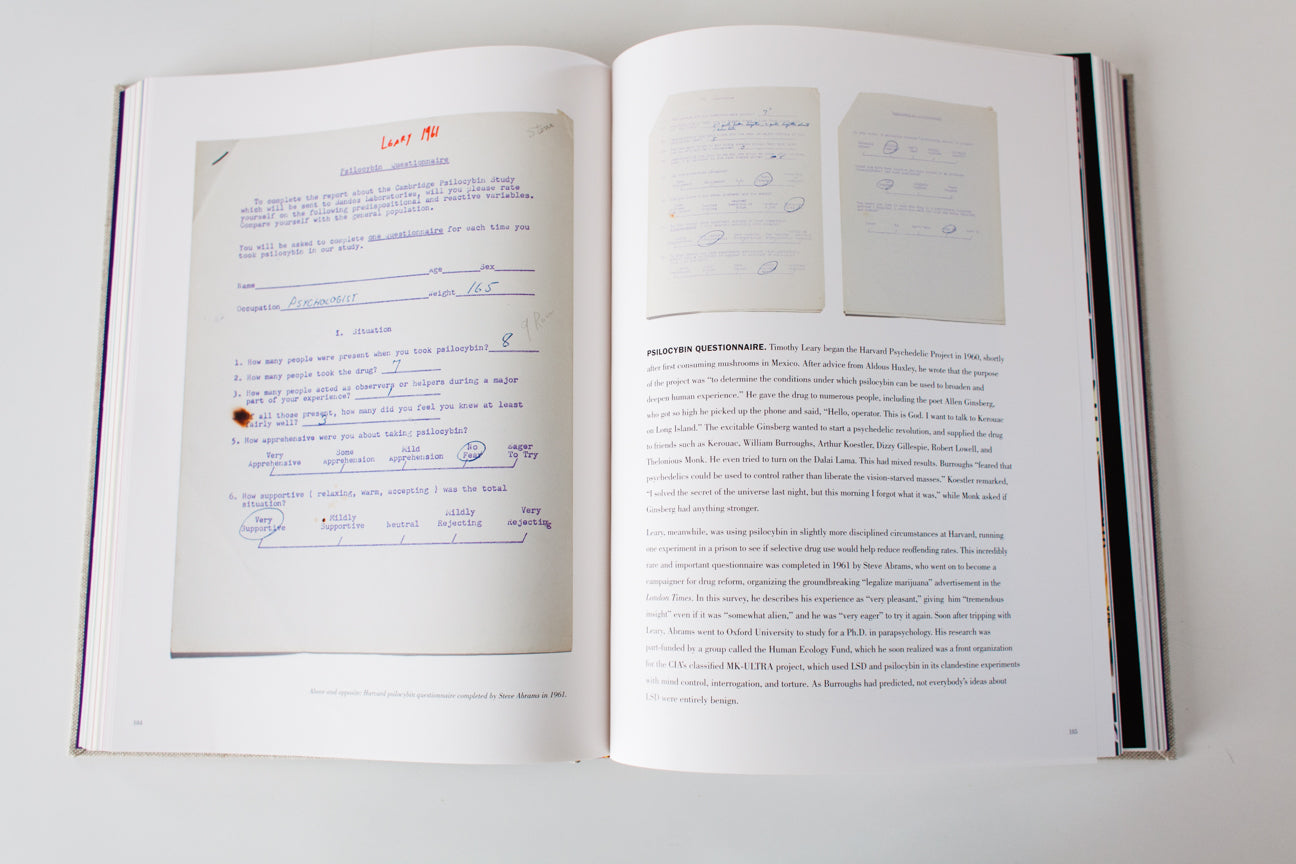 LEARY 1961
Steve
Psilocybin Questionnaire
To complete the report about the Cambridge Psilocybin Study
which will be sent to Sandoz Laboratories, will you please rate
yourself on the following predispositional and reactive variables.
Compare yourself with the general population.
You will be asked to complete one questionnaire for each time you
took psilocybin in our study.
Name Age Sex
Occupation PSYCHOLOGIST Weight 165
I. Situation
1. How many people were present when you took psilocybin? 8
2. How many people took the drug? 7
3. How many people acted as observers or helpers during a major
part of your experience? 1
of all those present, how many did you feel you knew at least
fairly well? 3
5. How apprehensive were you about taking psilocybin?
Very Some Mild No Eager
Apprehensive apprehension apprehension Fear To Try
6. How supportive ( relaxing, warm, accepting ) was the total
situation?
Very Mildly Neutral Mildly Very
Supportive Supportive Rejecting Rejecting
Above and opposite: Harvard psilocybin questionnaire completed by Steve Abrams in 1961.
184
PSILOCYBIN QUESTIONNAIRE. Timothy Leary began the Harvard Psychedelic Project in 1960, shortly
after first consuming mushrooms in Mexico. After advice from Aldous Huxley, he wrote that the purpose
of the project was “to determine the conditions under which psilocybin can be used to broaden and
deepen human experience.” He gave the drug to numerous people, including the poet Allen Ginsberg,
who got so high he picked up the phone and said, “Hello, operator. This is God. I want to talk to Kerouac
on Long Island.” The excitable Ginsberg wanted to start a psychedelic revolution, and supplied the drug
to friends such as Kerouac, William Burroughs, Arthur Koestler, Dizzy Gillespie, Robert Lowell, and
Thelonious Monk. He even tried to turn on the Dalai Lama. This had mixed results. Burroughs “feared that
psychedelics could be used to control rather than liberate the vision-starved masses.” Koestler remarked,
“I solved the secret of the universe last night, but this morning I forgot what it was,” while Monk asked if
Ginsberg had anything stronger.
Leary, meanwhile, was using psilocybin in slightly more disciplined circumstances at Harvard, running
one experiment in a prison to see if selective drug use would help reduce reoffending rates. This incredibly
rare and important questionnaire was completed in 1961 by Steve Abrams, who went on to become a
campaigner for drug reform, organizing the groundbreaking “legalize marijuana” advertisement in the
London Times. In this survey, he describes his experience as “very pleasant,” giving him “tremendous
insight” even if it was “somewhat alien,” and he was “very eager” to try it again. Soon after tripping with
Leary, Abrams went to Oxford University to study for a Ph.D. in parapsychology. His research was
part-funded by a group called the Human Ecology Fund, which he soon realized was a front organization
for the CIA’s classified MK-ULTRA project, which used LSD and psilocybin in its clandestine experiments
with mind control, interrogation, and torture. As Burroughs had predicted, not everybody’s ideas about
LSD were entirely benign.
185